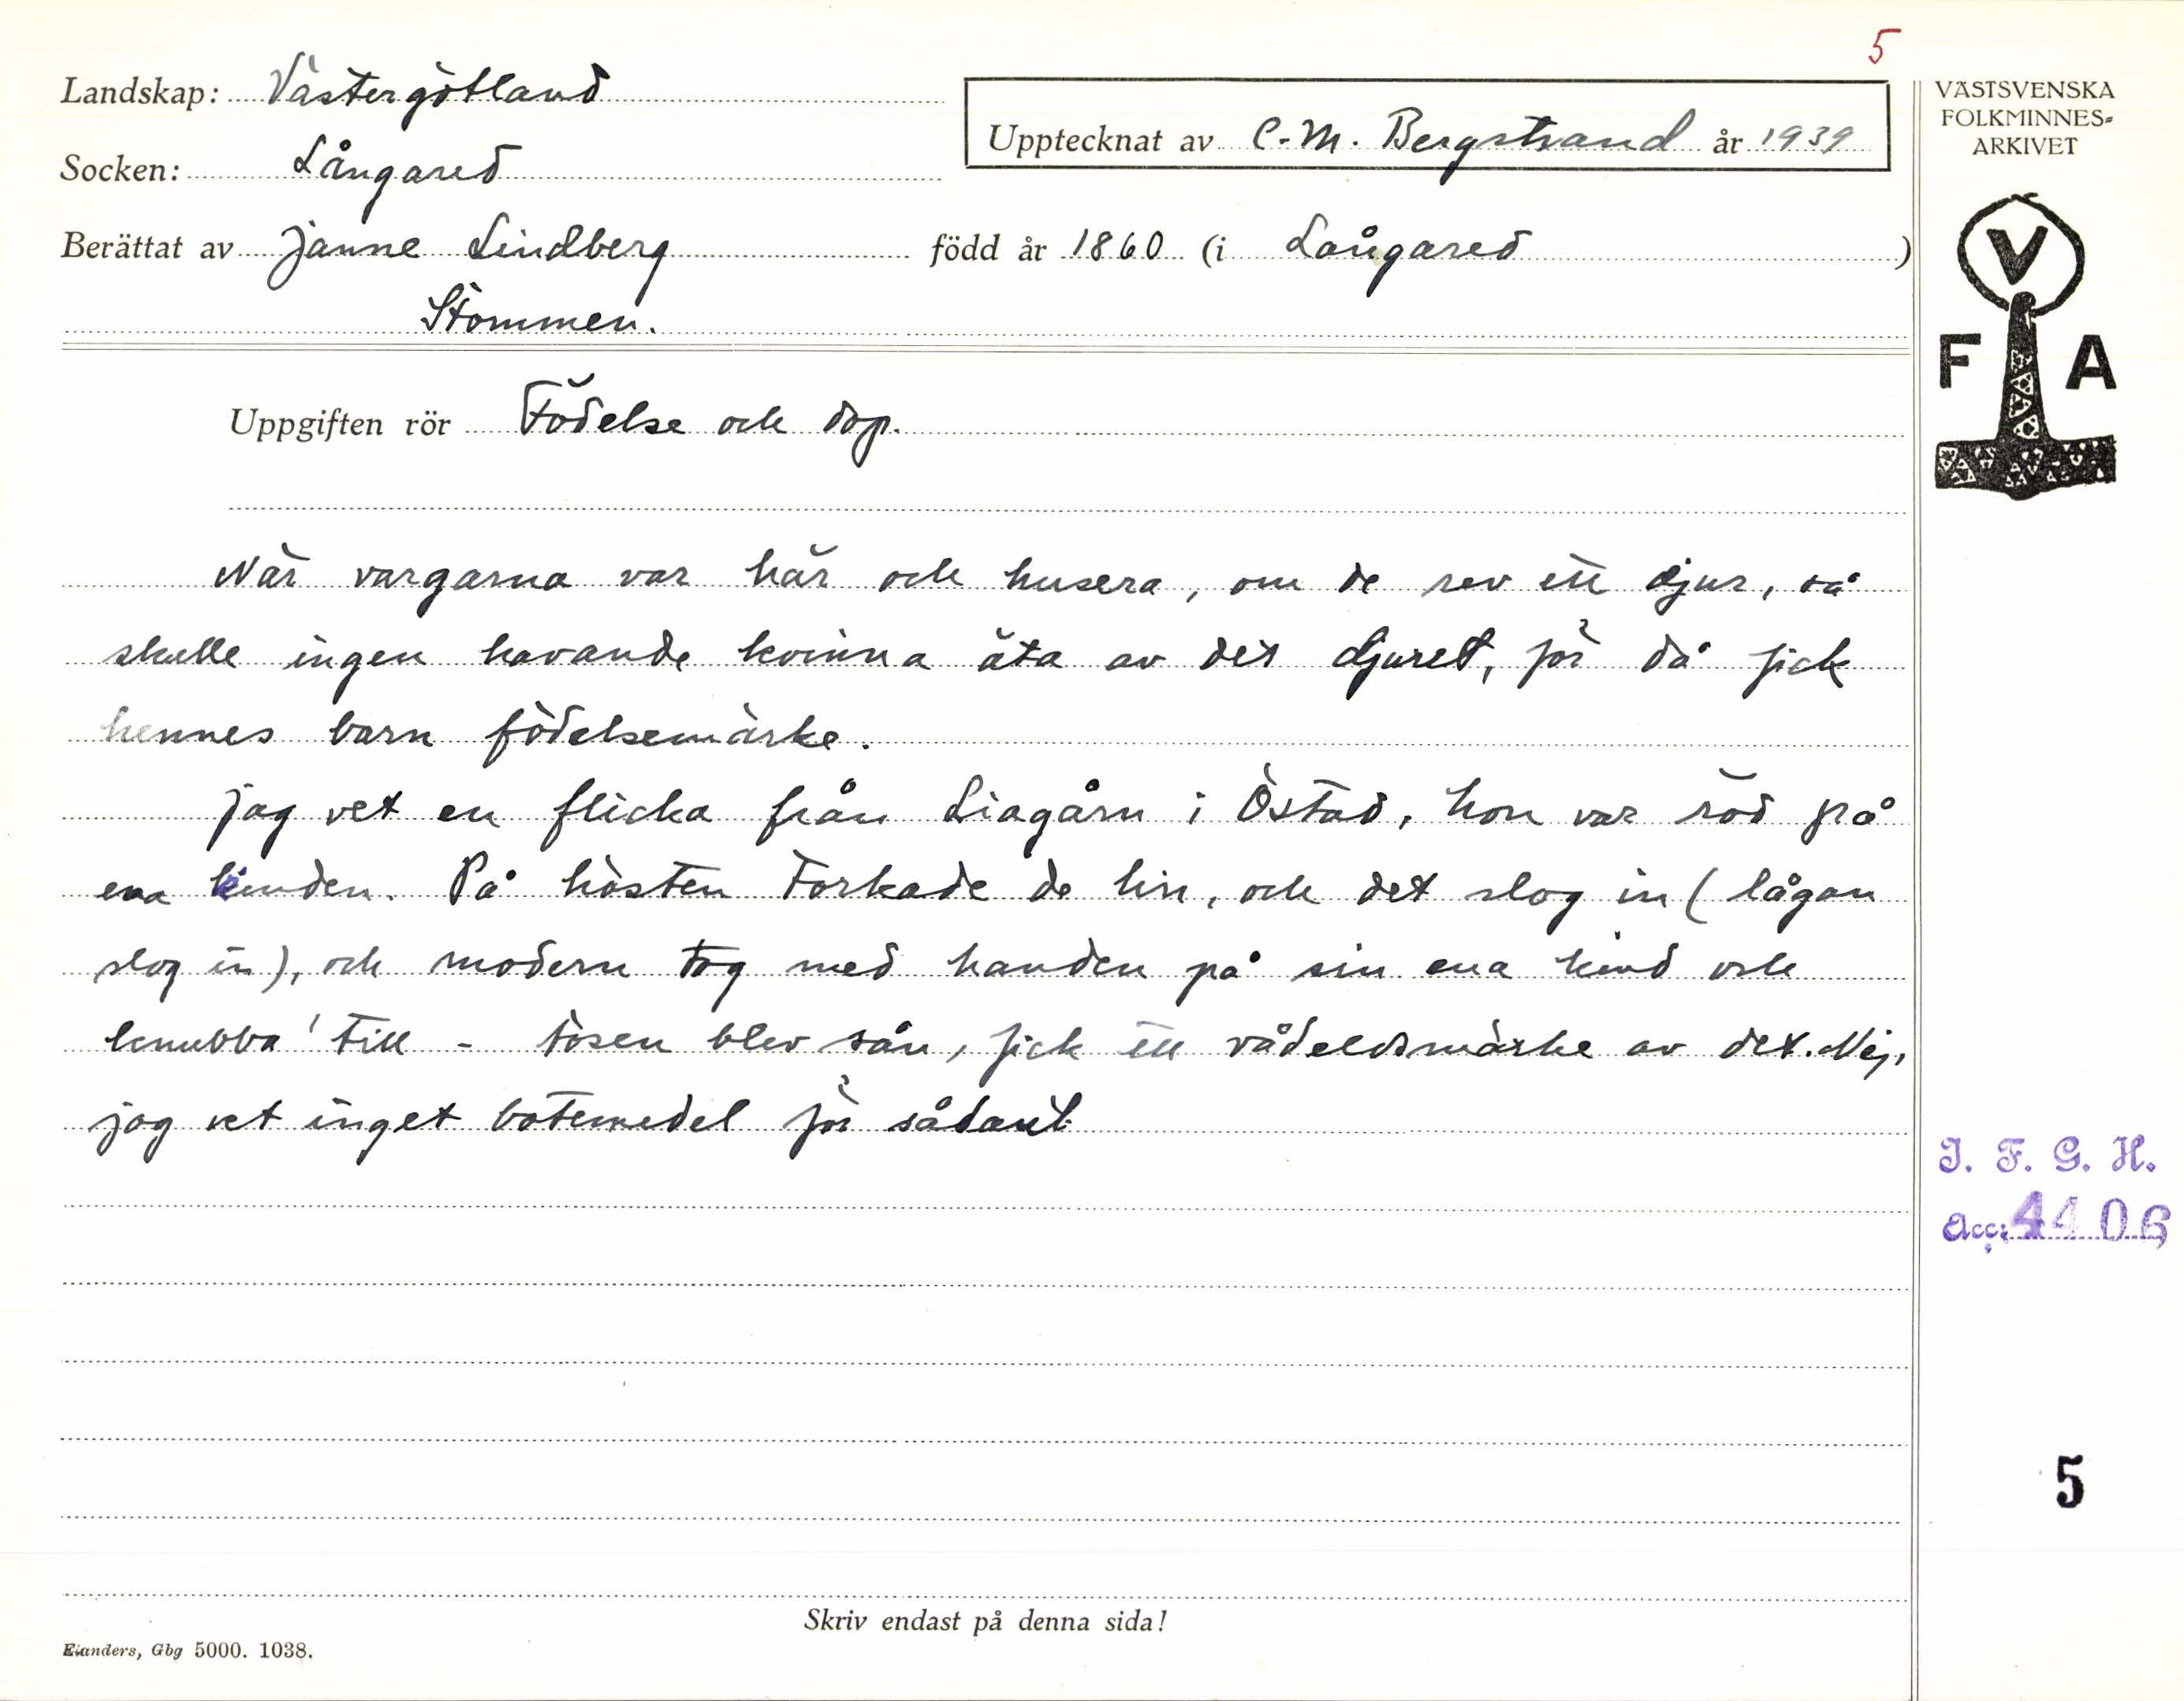 5
Landskap: Västergötland
Upptecknat av C.-M. Bergstrand år 1939
Socken: Långared
Berättat av Janne Lindberg född år 1860 (i Långared)
Stommen.
VÄSTSVENSKA
FOLKMINNES=
ARKIVET
V
F A
Uppgiften rör Födelse och dop.
När vargarna var här och husera, om de rev ett djur, så
skulle ingen havande kvinna äta av det djuret, för då fick
hennes barn födelsemärke.
Jag vet en flicka från Liagårn i Östad, hon var röd på
ena kinden. På hösten torkade de lin, och det slog in (lågan
slog in), och modern tog med handen på sin ena kind och
knubba' till - tösen blev sån, fick ett vådeldsmärke av det. Nej,
jag vet inget botemedel för sådant.
I. F. G. H.
Acc: 4406
5
Skriv endast på denna sida!
Elanders, Gbg 5000. 1038.